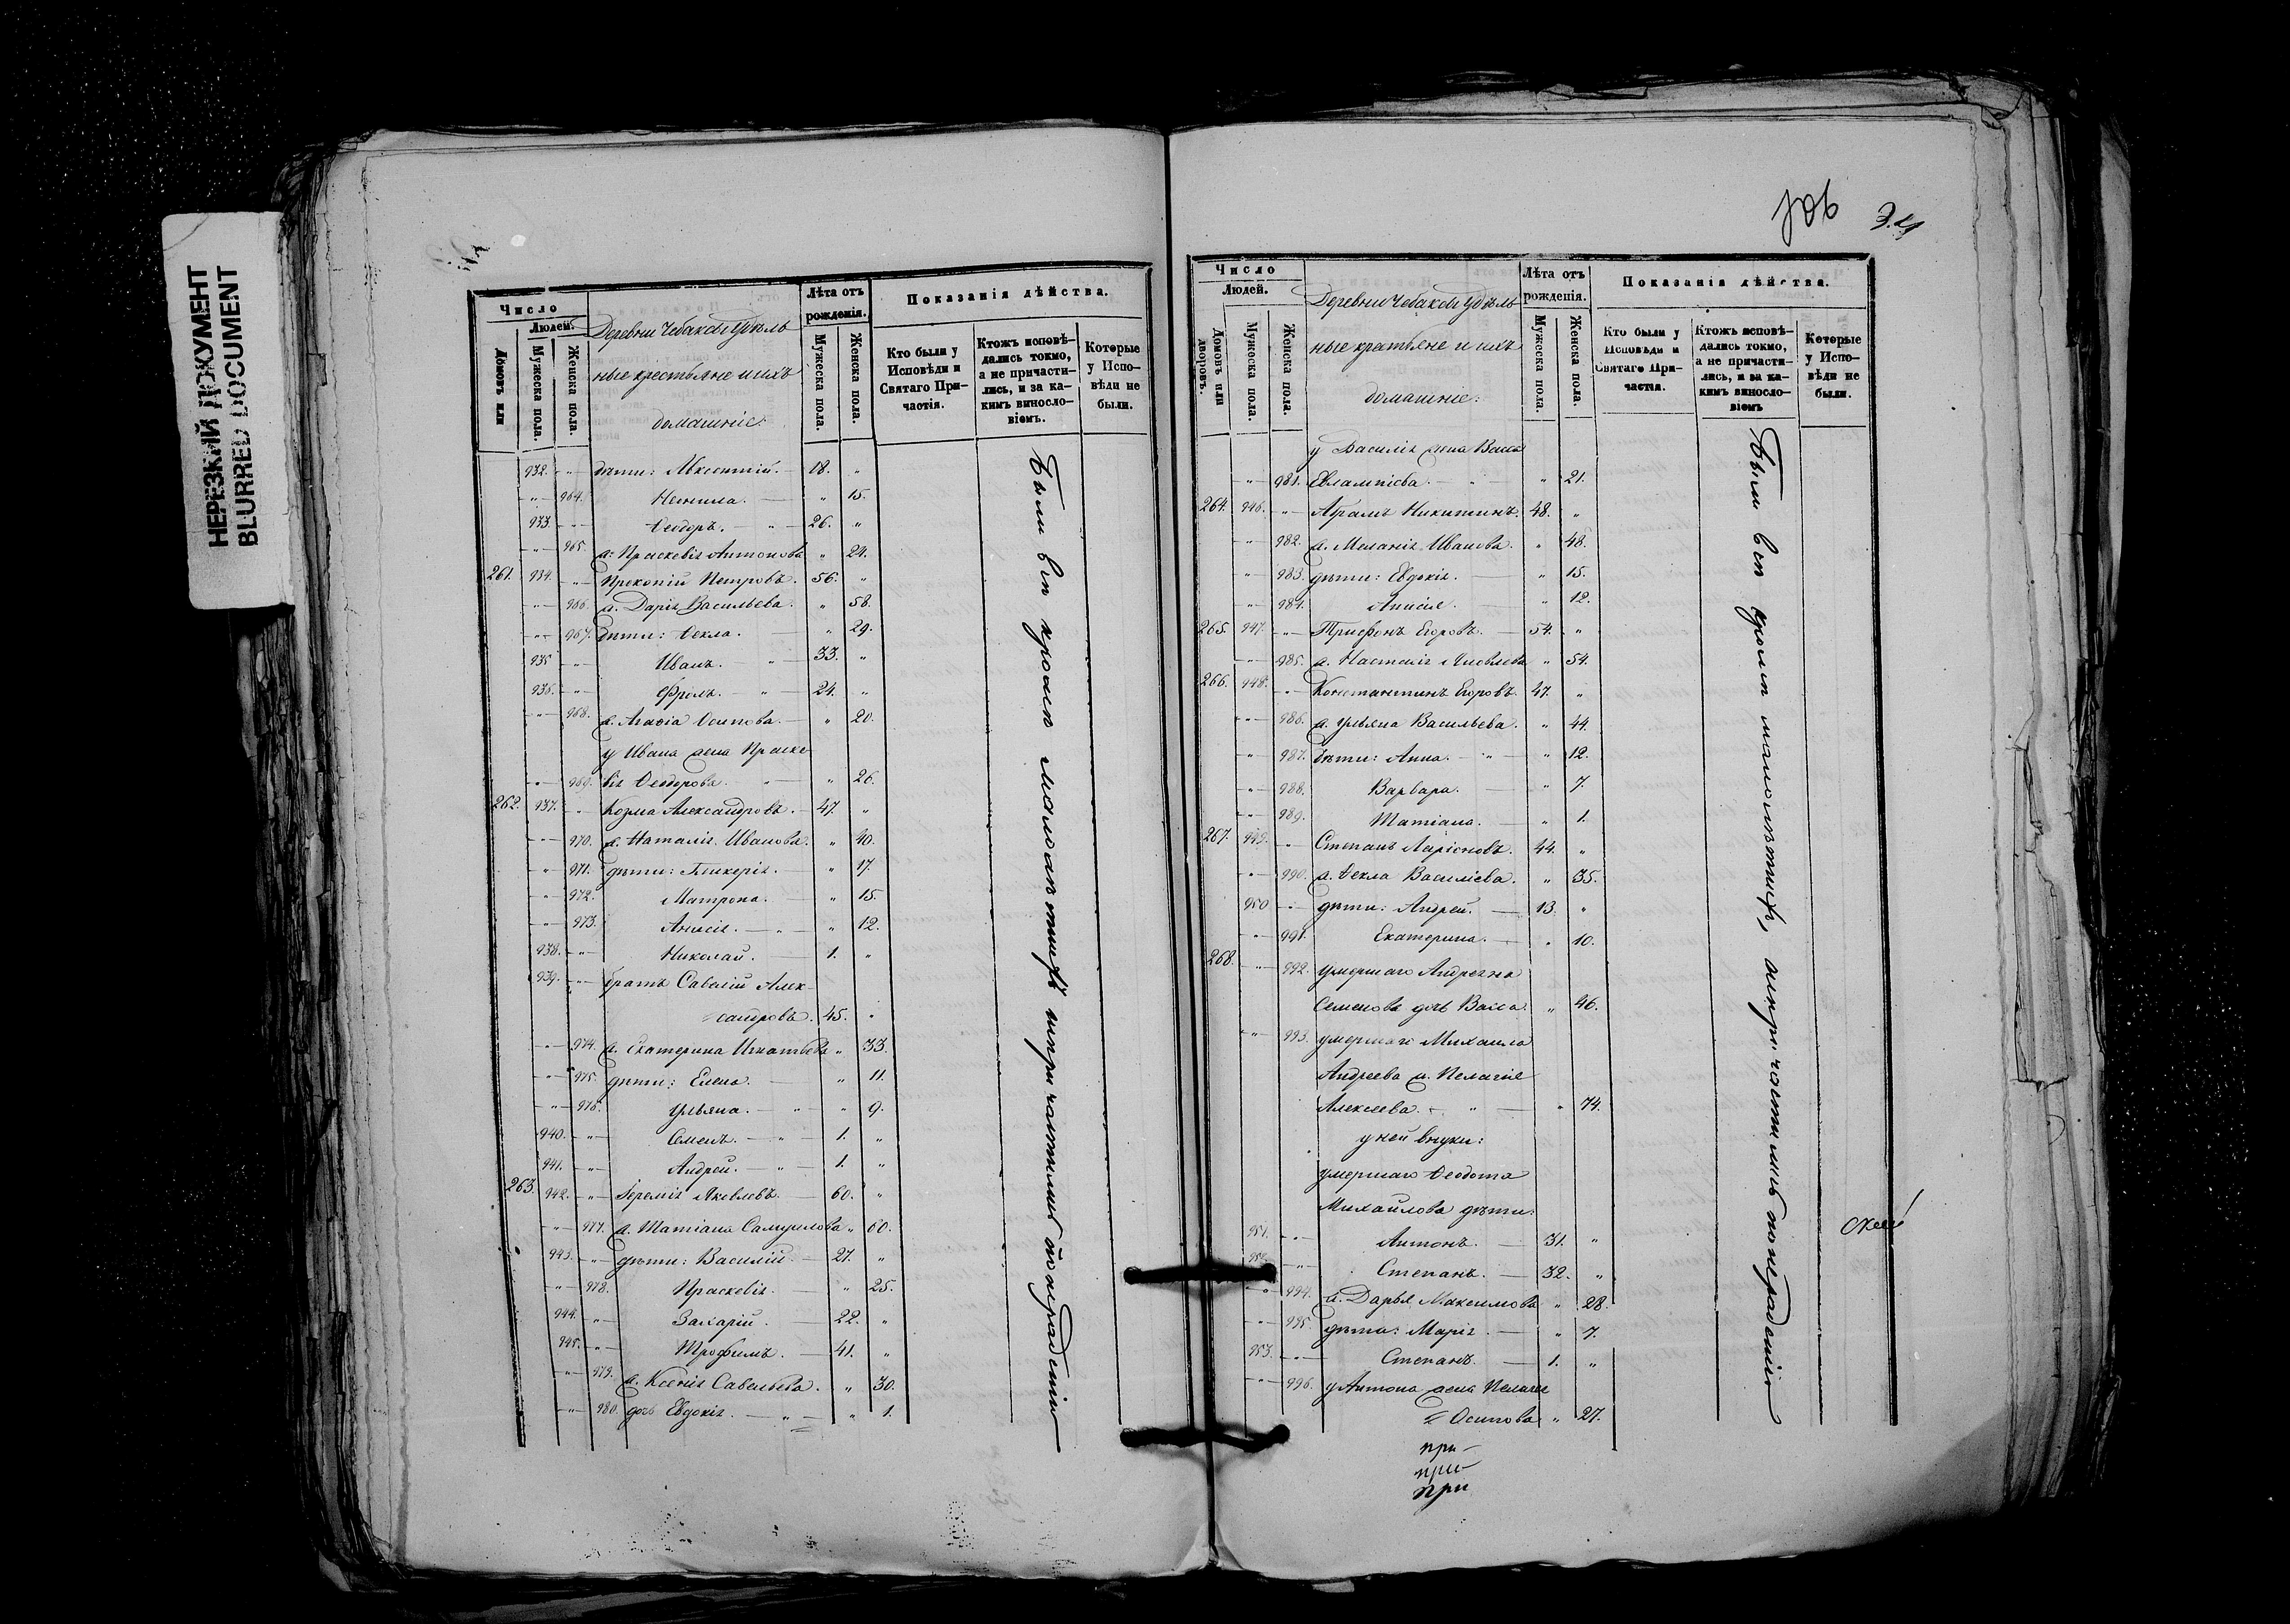 НЕРЕЗКИЙ ДОКУМЕНТ
BLURRED DOCUMENT
Число
Людей.
Домовъ или
Мужеска пола.
Женска пола.
Деревни Чебаково удѣль
ные крестьяне и ихъ
домашніе:
Лѣта отъ
рожденія.
Мужеска пола.
Женска пола.
Показанія дѣйства.
Кто были у
Исповѣди и
Святаго При-
частія.
Ктожъ исповѣ-
дались токмо,
а не причасти-
лись, и за ка-
кимъ винословіемъ.
Которые
у Испо-
вѣди не
были.
932. -"- дѣти: Авксентій. 18. "
-"- 964. Ненила. " 15.
933. -"- Ѳеодоръ. 26. "
-"- 965. ж: Праскевія Антонова " 24.
261. 934. -"- Прокопій Петровъ. 56. "
-"- 966. ж. Дарія Васильева. " 58.
-"- 967. дѣти: Ѳекла. " 29.
935 -"- Иванъ. 33. "
936. -"- Фролъ. 24. "
-"- 968. ж. Агафіа Осипова. " 20.
у Ивана жена Праске
-"- 969. вія Ѳеодорова. " 26.
262. 937. " Козма Александровъ. 47. "
-"- 970. ж. Наталія Иванова. " 40.
-"- 971. дѣти: Гликерія. " 17.
-"- 972. Матрона. " 15.
-"- 973. Анисія. " 12.
938. -"- Николай. 1. "
939. -"- братъ Савелій Алек
сандровъ. 45. "
-"- 974. ж. Екатерина Игнатьева " 33.
-"- 975. дѣти: Елена. " 11.
-"- 976. Ульяна. " 9.
940. -"- Семенъ. 1. "
941. -"- Андрей. 1. "
263. 942. -"- Іеремія Яковлевъ. 60. "
-"- 977. ж. Татіана Самуилова " 60.
943. -"- дѣти: Василій. 27. "
-"- 978. Праскевія. " 25.
944. -"- Захарій. 22. "
945. -"- Трофимъ. 41. "
-"- 979. ж. Ксенія Савельева. " 30.
-"- 980. дочь Евдокія. " 1.
Были всѣ кромѣ малолѣтнихъ
Число
Людей.
Домовъ или
дворовъ.
Мужеска пола.
Женска пола.
Деревни Чебаково удѣль
ные крестьяне и ихъ
домашніе:
Лѣта отъ
рожденія.
Мужеска пола.
Женска пола.
Показанія дѣйства.
Кто были у
Исповѣди и
Святаго При-
частія.
Ктожъ исповѣ-
дались токмо,
а не причасти-
лись, и за ка-
кимъ винословіемъ
Которые
у Испо-
вѣди не
были.
у Василія жена Васса
-"- 981. Евлампіева. " 21.
264. 946. -"- Абрамъ Никитинъ. 48. "
" 982. ж. Меланія Иванова. " 48.
-"- 983. дѣти: Евдокія. " 15.
-"- 984. Анисія. " 12.
265. 947. -"- Трифонъ Егоровъ. 54. "
-"- 985. ж. Настасія Яковлева " 54.
266. 948. -"- Константинъ Егоровъ. 47. "
-"- 986. ж. Ульяна Васильева. " 44.
" 987. дѣти: Анна. " 12.
-"- 988. Варвара. " 7.
-"- 989. Татіана. " 1.
267. 949. " Степанъ Ларіоновъ. 44. "
-"- 990. ж. Ѳекла Василіева. " 35.
950 -"- дѣти: Андрей. 13. "
-"- 991. Екатерина. " 10.
268. -"- 992. умершаго Андреяна
Семенова дочь Васса. " 46.
-"- 993. умершаго Михаила
Андреева ж. Пелагія
Алексеева. " 74.
у ней внуки:
умершаго Ѳеодота
Михайлова дѣти:
951. -"- Антонъ. 31. "
952. " Степанъ. 32. "
-"- 994. ж. Дарья Максимова " 28.
-"- 995. дѣти: Марія. " 7.
953. -"- Степанъ. 1. "
-"- 996. у Антона жена Пелагея
Осипова " 27.
Были всѣ кромѣ малолѣтнихъ,
при-
при-
при